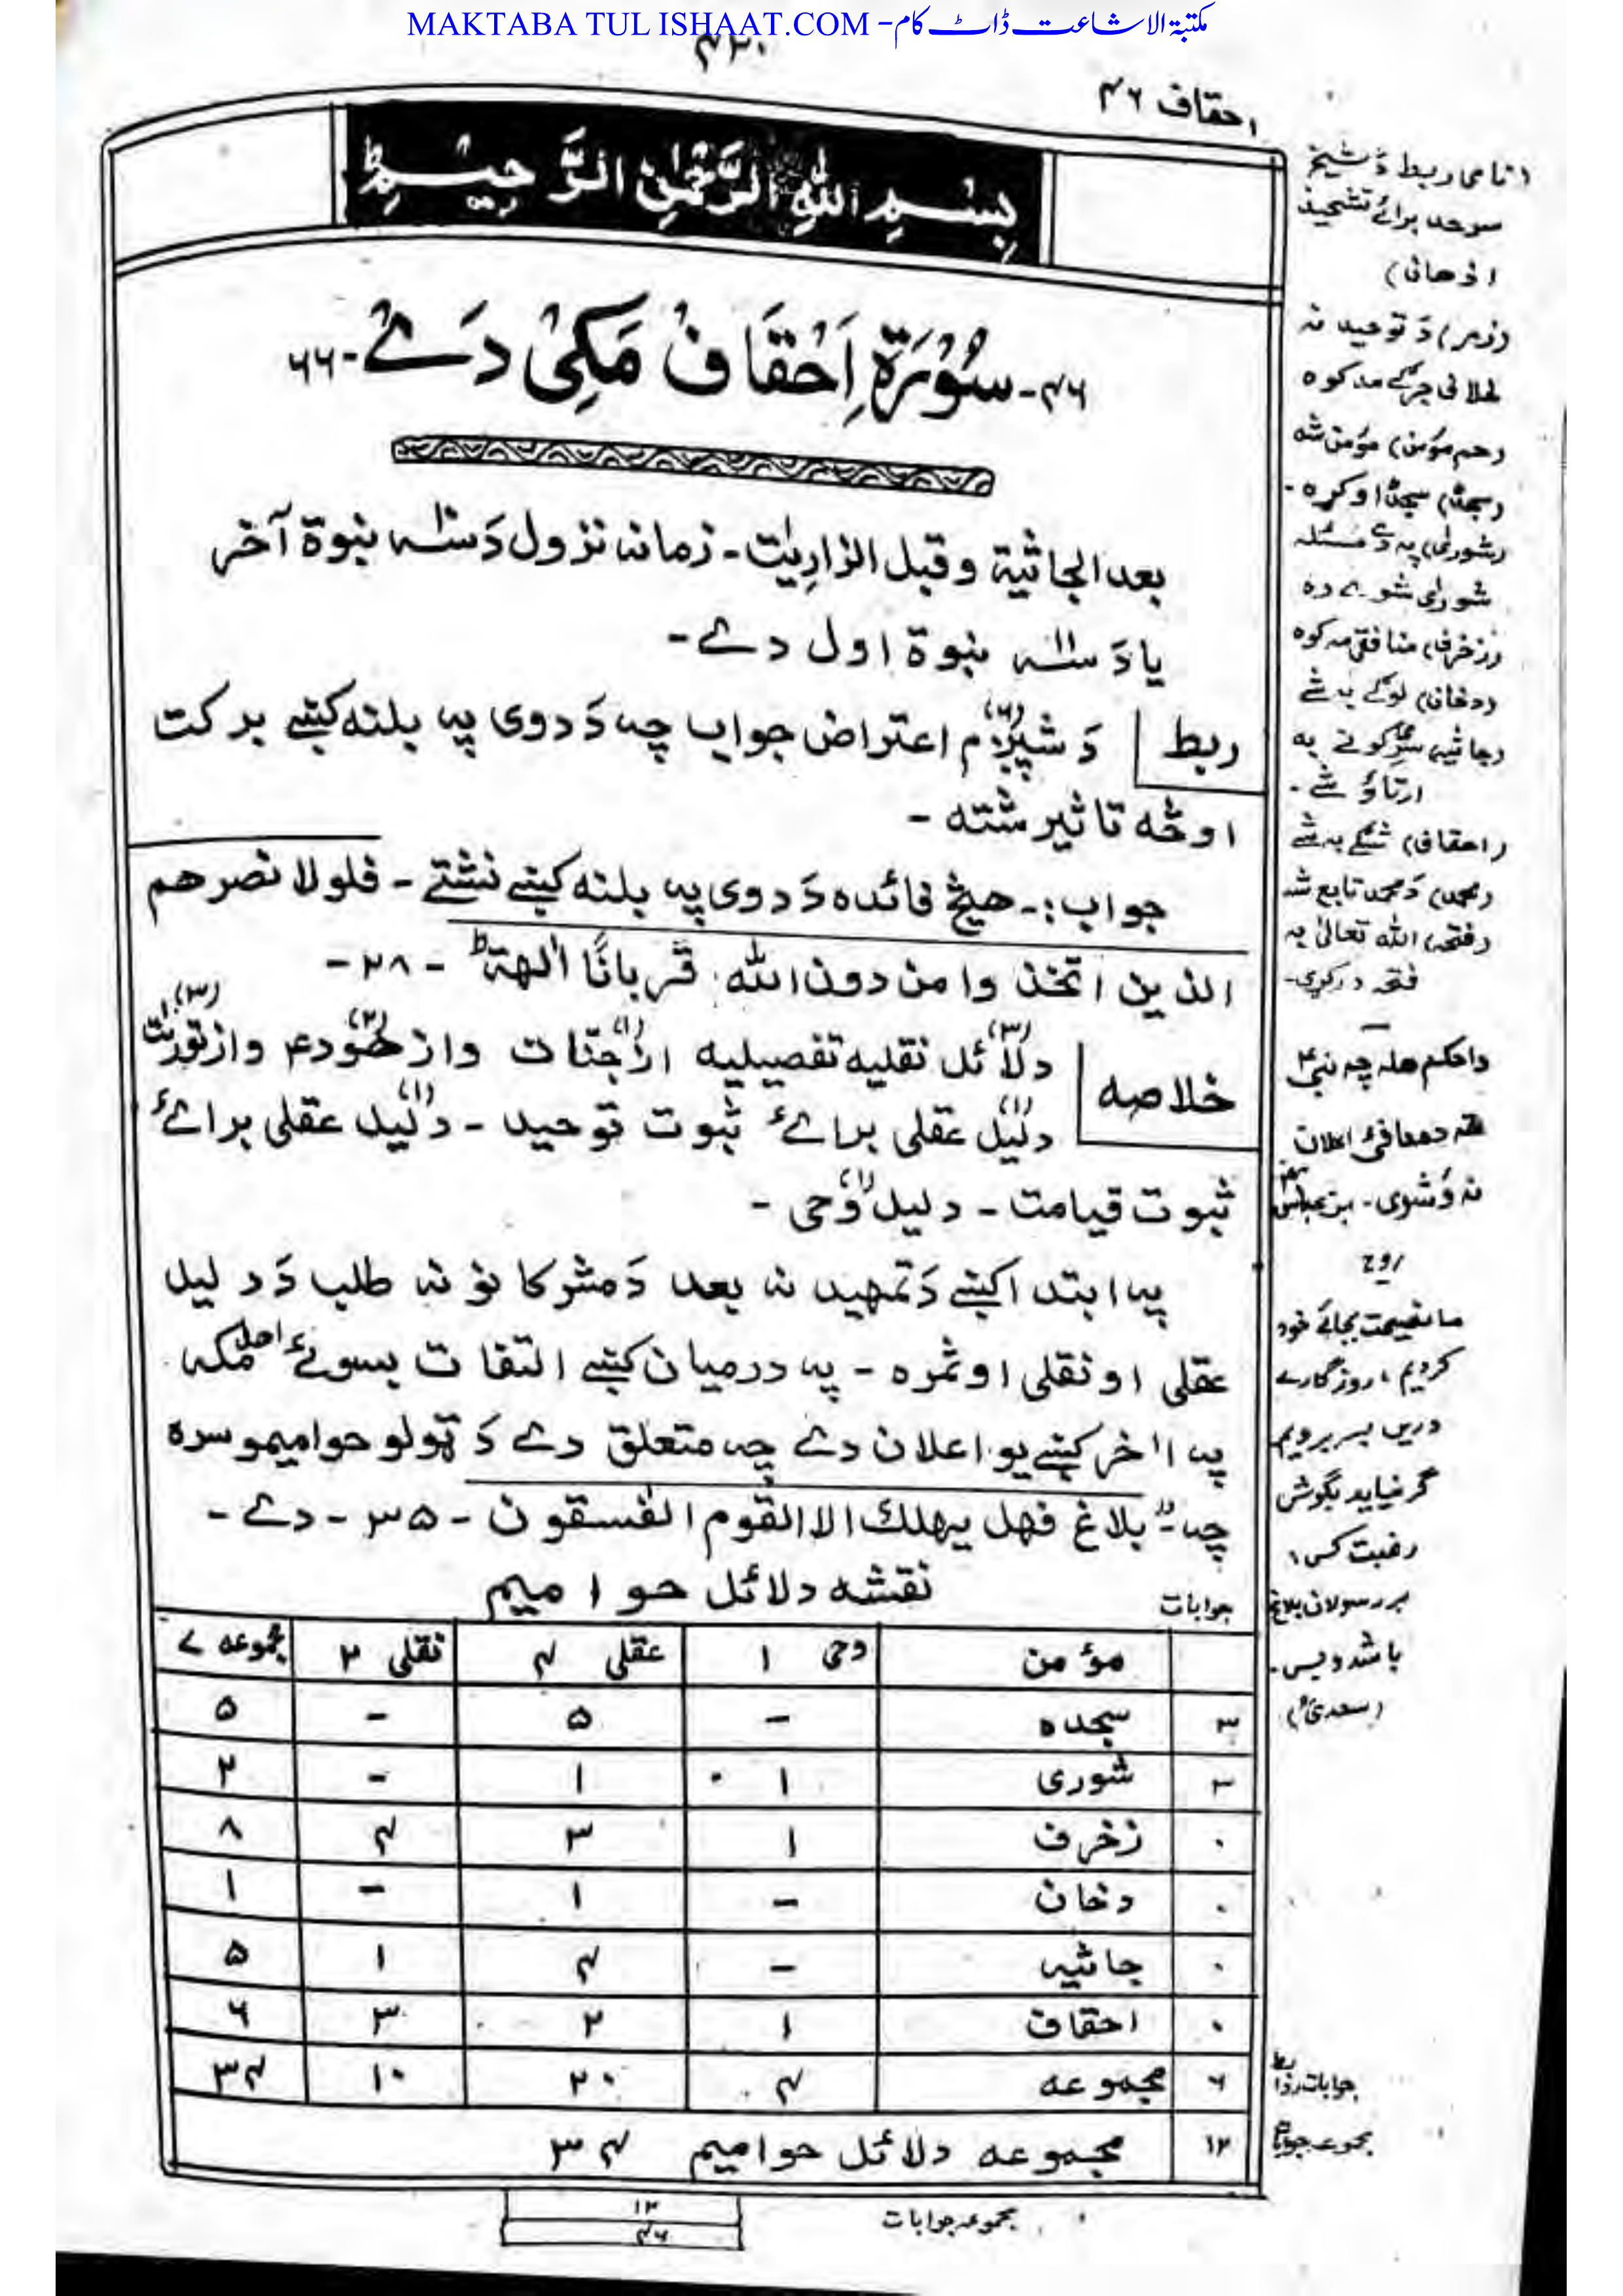 MAKTABA TUL ISHAAT.COM - مکتبۃ الاشاعت ڈاٹ کام
۴۲۰
احقاف ۴۶
بِسْمِ اللّٰهِ الرَّحْمٰنِ الرَّحِيْمِ
۴۶- سُوْرَۃ اَحْقَاف مَکِیْ دَے - ۶۶
بعد الجاثیة وقبل الزاریٰت - زمانه نزول دَ سنه نبوة آخر
یا دَ سنه نبوة اول دے -
ربط دَ شپږم (۶) اعتراض جواب چه دَ دوی په بلنه کښے برکت
او څه تاثیر شته -
جواب :- هیڅ فائده دَ دوی په بلنه کښے نشتے - فلولا نصرهم
الذین اتخذوا من دون الله قربانًا اٰلهة ط - ۲۸ -
خلاصه دلائل (۳) نقلیه تفصیلیه از جنّات (۱) و از هود ع (۲) و از تورٰت (۳)
دلیل (۱) عقلی برائے ثبوت توحید - دلیل (۱) عقلی برائے
ثبوت قیامت - دلیل (۱) وحی -
په ابتدا کښے دَ تمهید نه بعد دَ مشرکانو نه طلب دَ دلیل
عقلی او نقلی او ثمره - په درمیان کښے التفات بسوئے اهل مکه
په اٰخر کښے یو اعلان دے چه متعلق دے دَ ټولو حوامیمو سره
چه " بلاغ فهل یهلك الا القوم الفسقون - ۳۵ - دے -
نقشه دلائل حوامیم
جوابات
مؤمن وحی ۱ عقلی ۴ نقلی ۲ مجموعه ۷
۳ سجده - ۵ - ۵
۳ شوری ۱ ۱ - ۲
۰ زخرف ۱ ۳ ۴ ۸
۰ دخان - ۱ - ۱
۰ جاثیه - ۴ ۱ ۵
۰ احقاف ۱ ۲ ۳ ۶
۶ مجموعه ۴ ۲۰ ۱۰ ۳۴
۱۲ مجموعه دلائل حوامیم ۳۴
مجموعه جوابات
۱۲
۴۶
ربط دَ شیخ
برائے تشحیذ
اذهان)
(زمر) دَ توحید نه
مه کوه
(حم مؤمن) مؤمن شه
(سجدة) سجدة اوکړه -
(شورٰی) په دے مسئله
شورٰی شوے ده
(زخرف) منافقی مه کوه
(دخان) لوګے به شے
(جاثیه) به
شے -
(احقاف) به شے
(محمد) دَ محمد تابع شه
(فتحه) الله تعالیٰ به
فتحه درکړی -
دا حکم هله چه نبی
معافئ اعلان
نه وَ شوی -
روح
ما نصیحت بجائے خود
کردیم، روزگارے
دریں بسر بردیم
گر نیاید بگوش
رغبت کس،
بر رسولاں بلاغ
باشد و بس -
(سعدیؒ)
جوابات
مجموعه